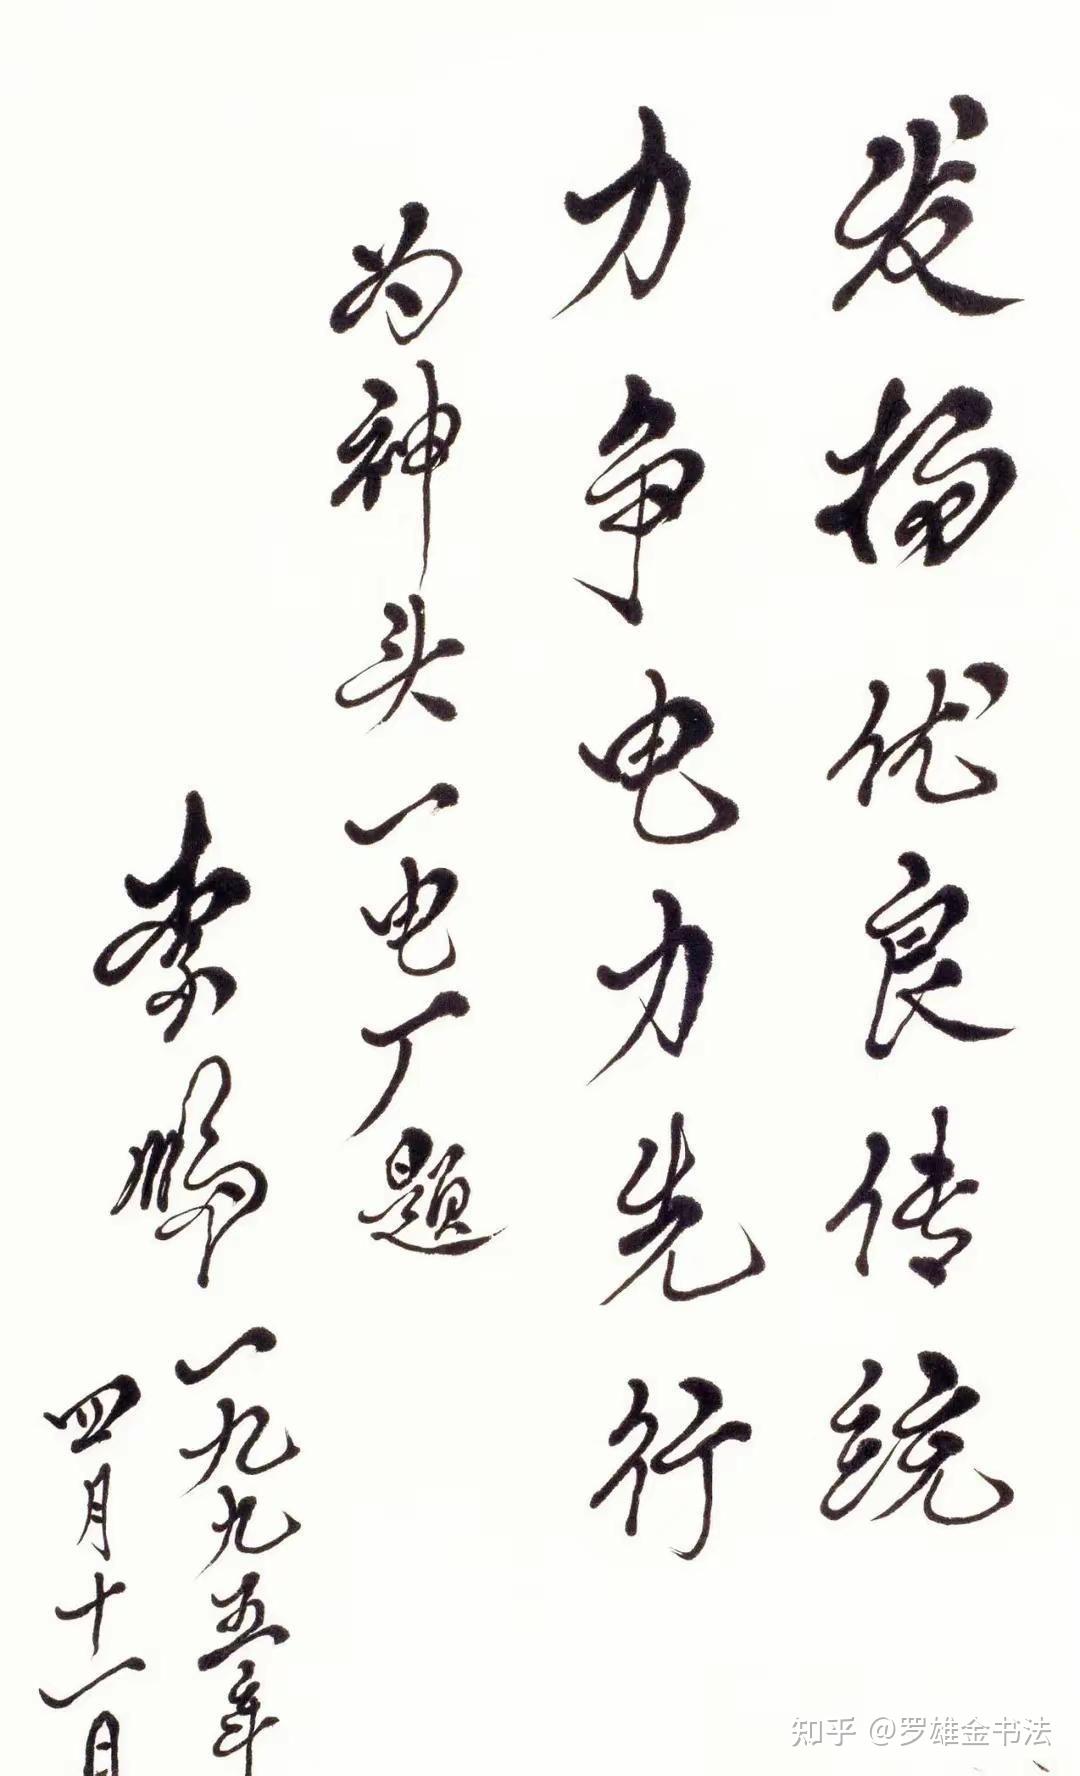 发扬优良传统
力争电力先行
为神头一电厂题
李鹏
一九九五年
四月十一日
知乎 @罗雄金书法